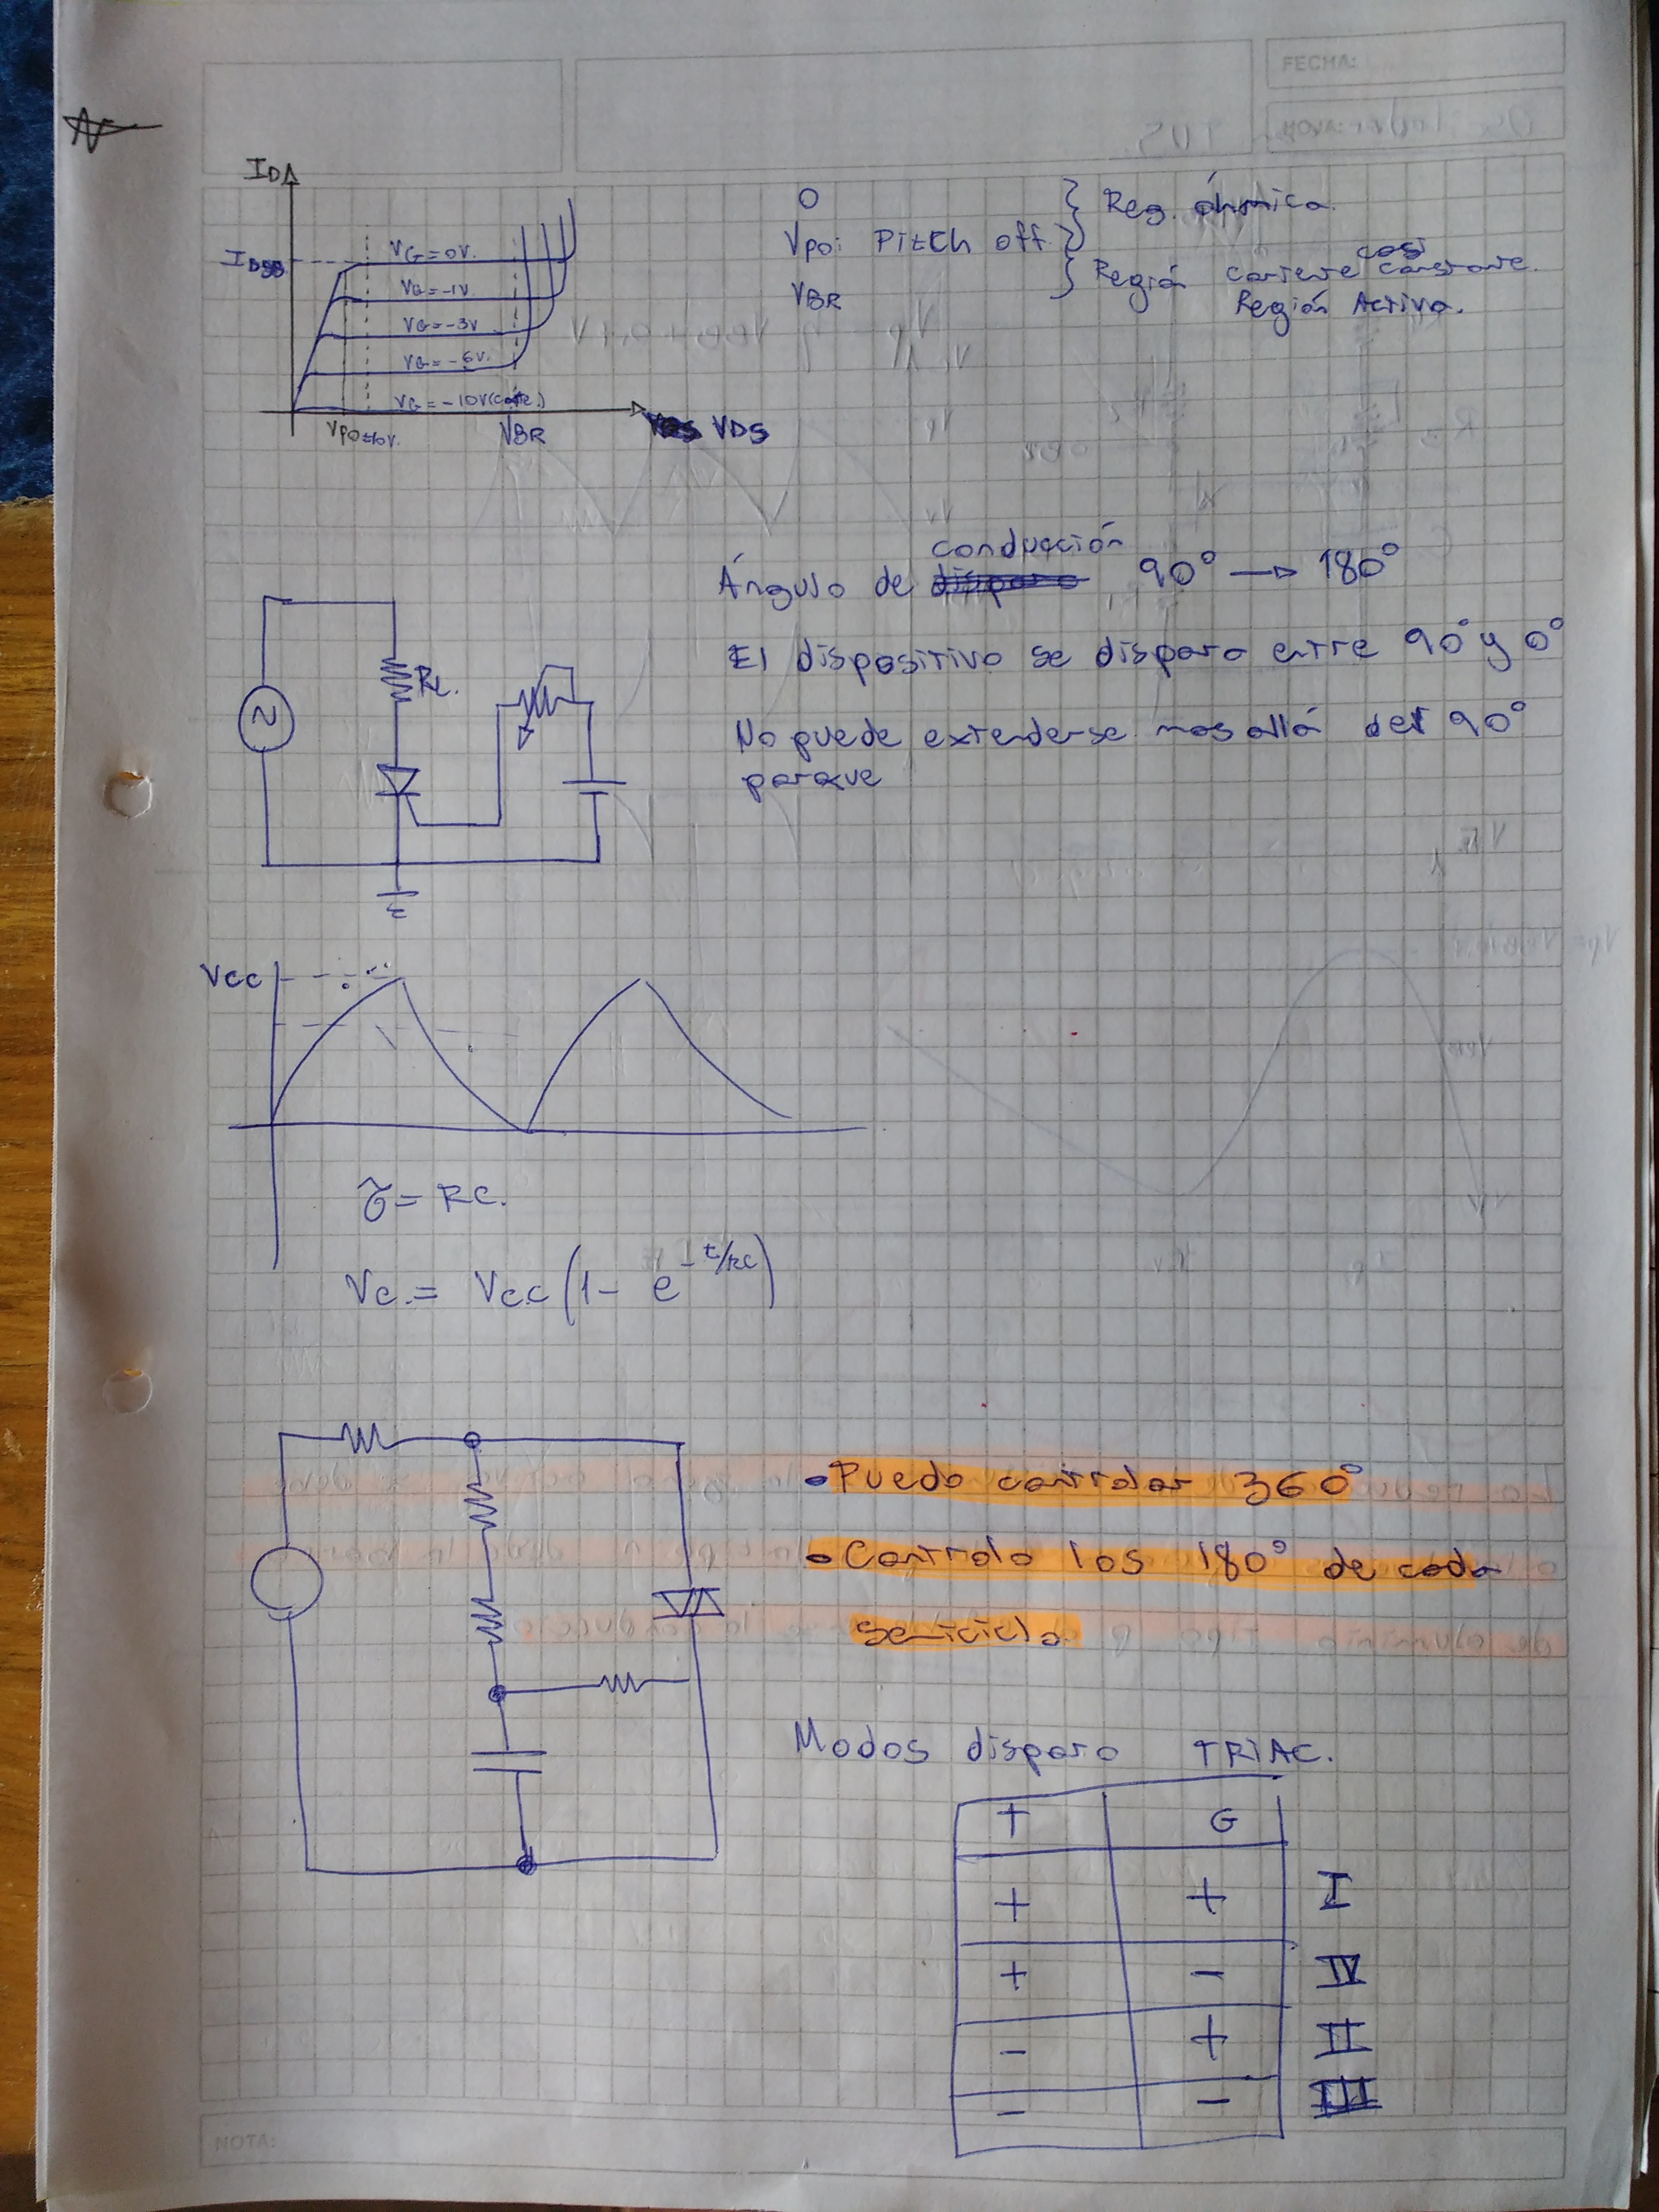 FECHA:
HOJA:
ID
IDSS
VG=0V.
VG=-1V
VG=-3V
VG=-6V.
VG=-10V(corte.)
VPO=10V.
VBR
VDS
0
VPO: Pitch off
VBR
Reg. óhmica.
casi
Región corriente constante.
Región Activa.
conducción
Ángulo de disparo 90° → 180°
El dispositivo se dispara entre 90° y 0°
No puede extenderse mas allá del 90°
porque
RL.
VCC
τ = RC.
Vc. = Vcc (1 - e^-t/RC)
• Puedo controlar 360°
• Controlo los 180° de cada
semiciclo.
Modos disparo TRIAC.
T G
+ + I
+ - IV
- + II
- - III
NOTA: